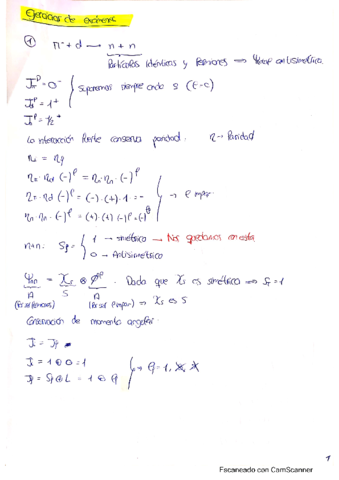 Ejercicios de exámenes
① π⁻ + d → n + n
Partículas idénticas y fermiones ⟹ antisimétrica.
J_π^P = 0⁻
J_d^P = 1⁺
J_n^P = ½⁺
Suponemos siempre onda s
La interacción fuerte conserva paridad. η → Paridad
η_i = η_f
η_π · η_d (-)^ℓ = η_n · η_n · (-)^ℓ
η_π · η_d (-)^ℓ = (-) · (+) · 1 = -
η_n η_n · (-)^ℓ = (+) · (+) (-)^ℓ = (-)^ℓ
→ ℓ impar
n+n: S_f = { 1 → simétrico → Nos quedamos con esta
0 → Antisimétrico
= χ_s ⊗ φ^ℓ. Dado que χ_s es simétrico ⟹ S_f = 1
A S A
(Por ser fermiones) (Por ser ℓ impar) ⟹ χ_s es S
Conservación de momento angular
J_i = J_f
J_i = 1 ⊗ 0 = 1
J_f = S_f ⊗ L = 1 ⊗ ℓ_f
1
Escaneado con CamScanner